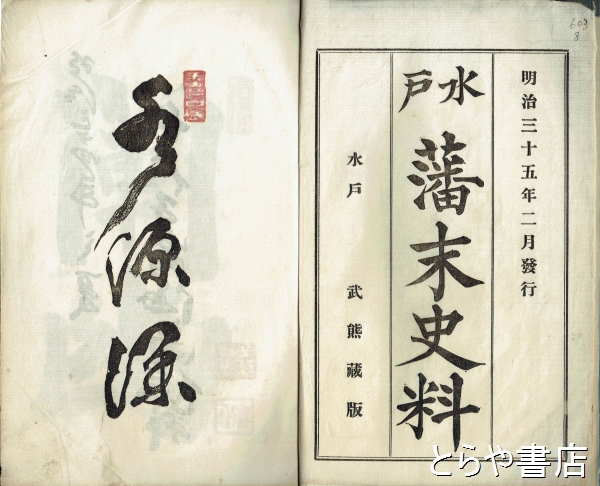 明治三十五年二月發行
水戸
藩末史料
水戸 武熊藏版
源深
603
8
とらや書店